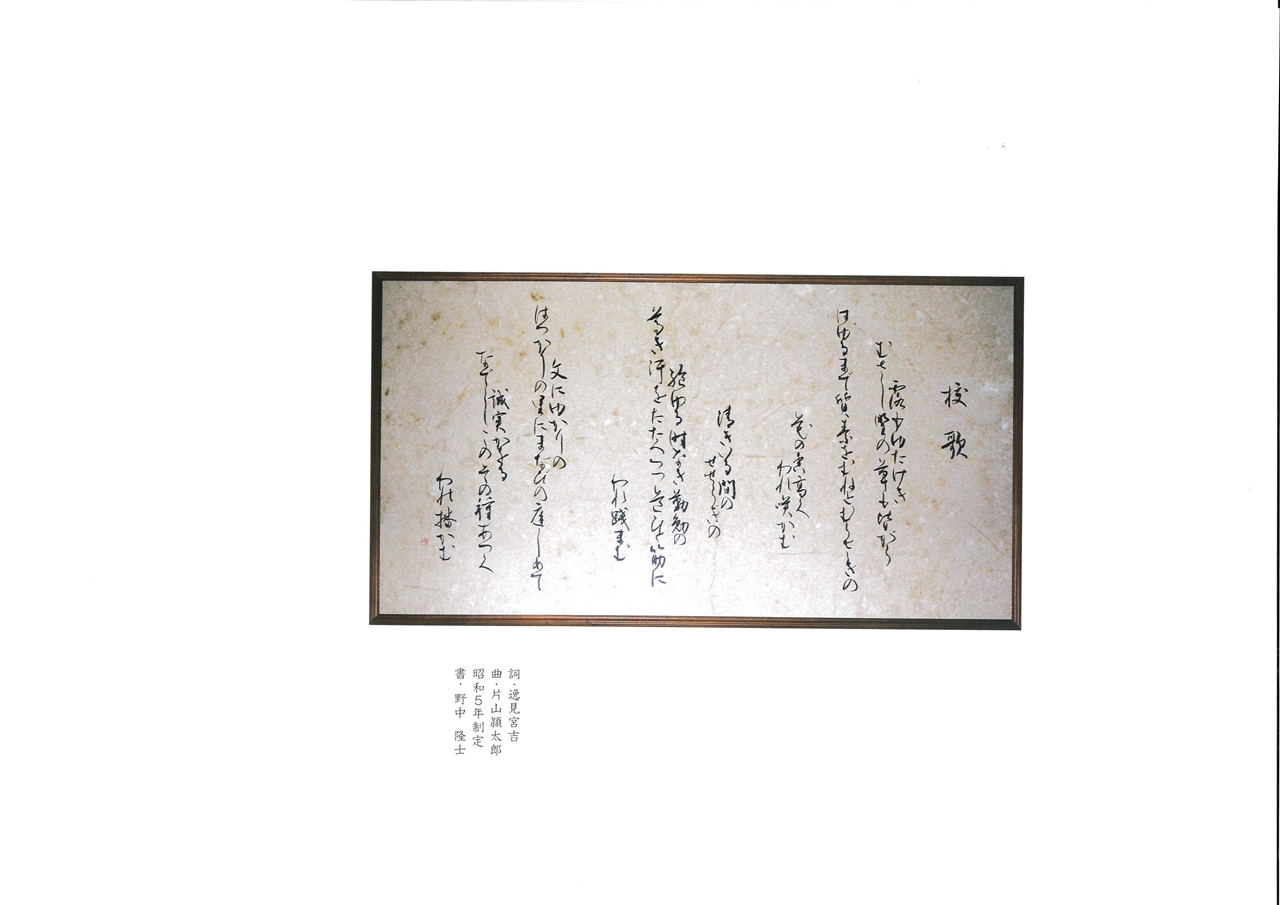 校歌
露もゆたけき
むさし野の草も皆がら
はゆるまで質素をむねとむらさきの
花の香高く
われ咲かむ
清きいる間の
せせらぎの
絶ゆる時なき勤勉の
尊き汗をたたへつつ道ひと筋に
われ践まむ
文にゆかりの
はつかりの里にまなびの庭しめて
誠実かをる
なでしこのその種あつく
われ播かむ
詞・逸見宮吉
曲・片山頴太郎
昭和5年制定
書・野中 隆士